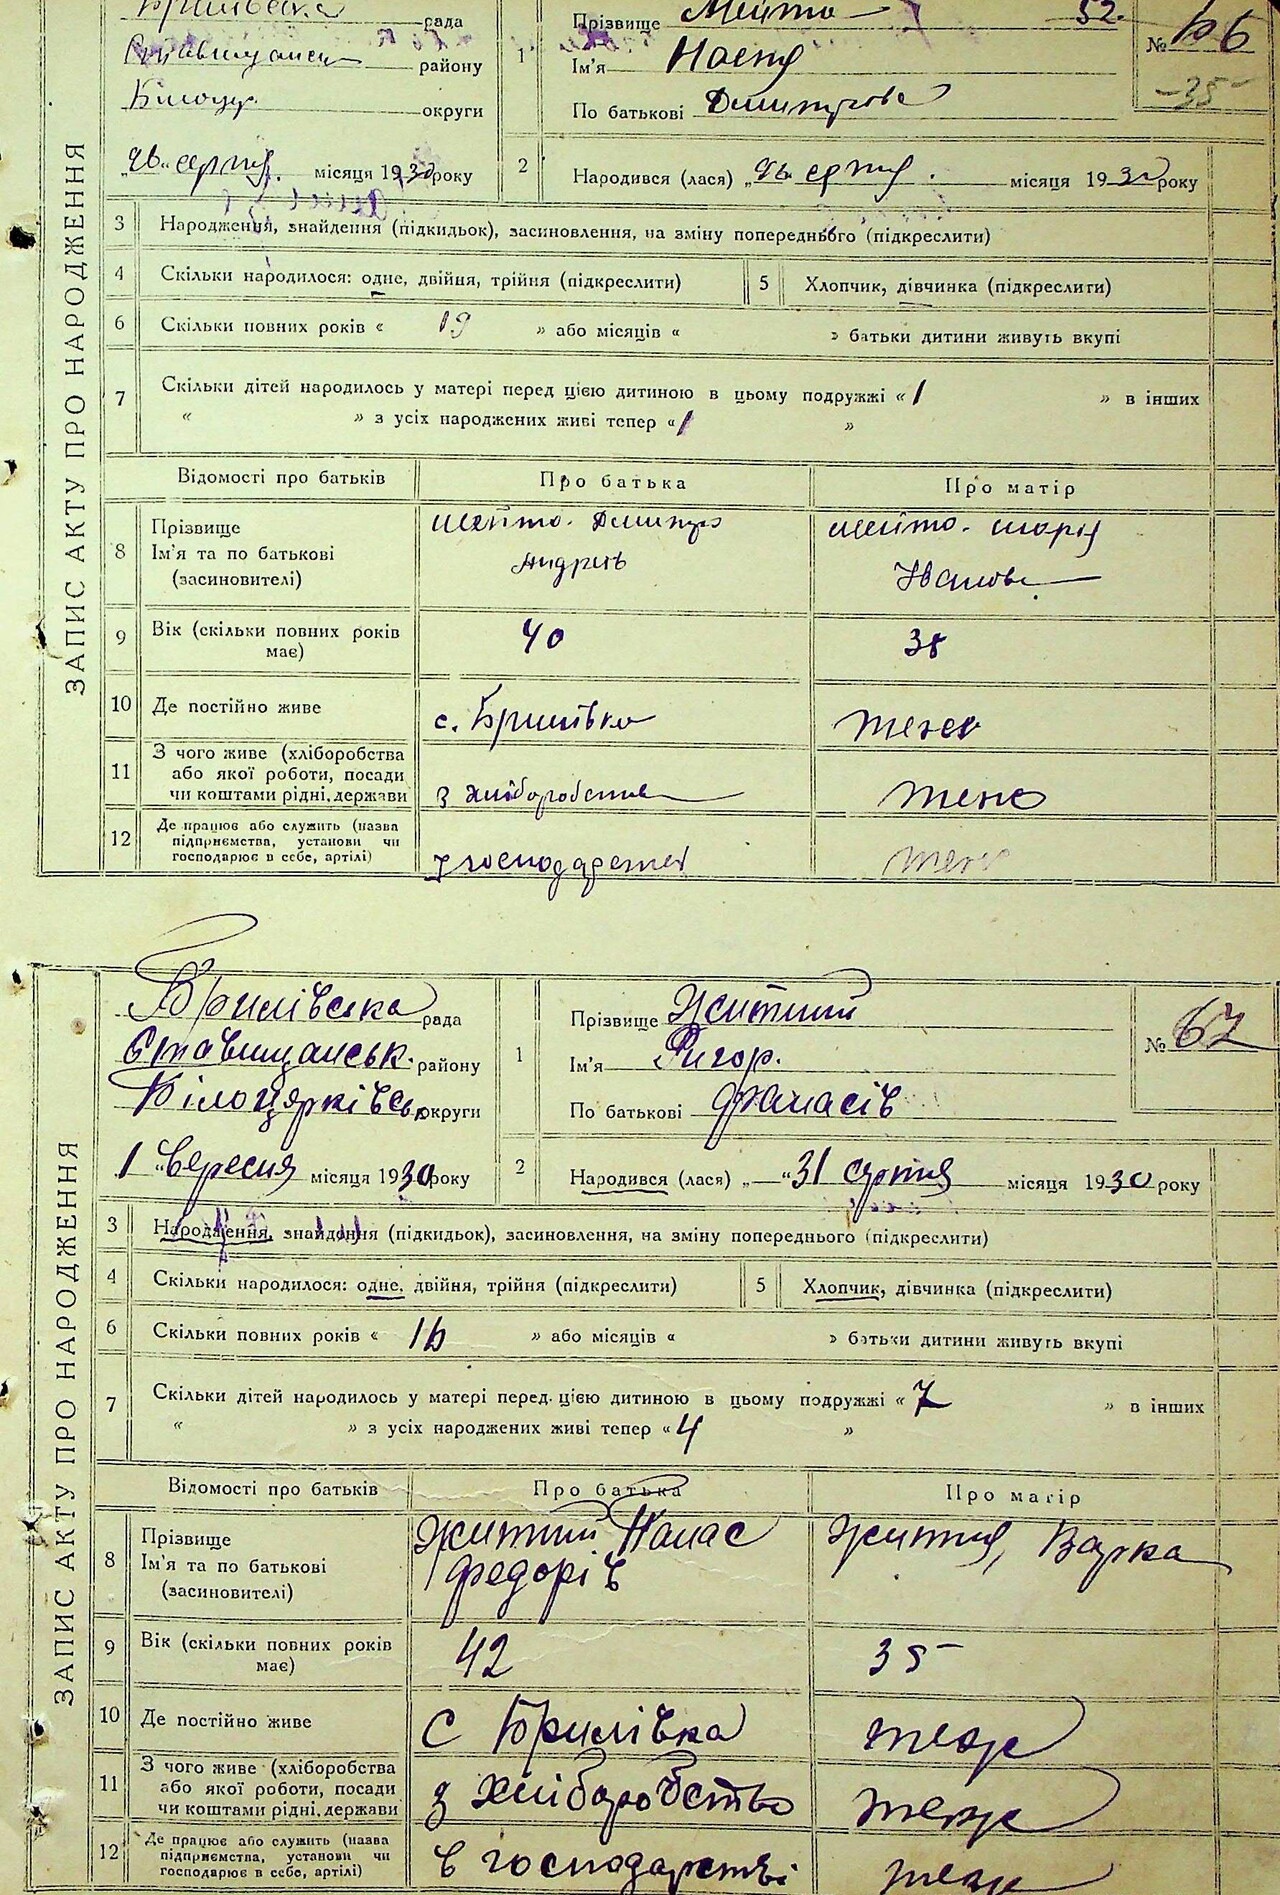 ЗАПИС АКТУ ПРО НАРОДЖЕННЯ
рада
району
Білоцер. округи
„26 серпня місяця 1930 року
1 Прізвище Мейта
Ім'я Настя
По батькові Дмитрова
№ 66
-35-
52.
2 Народився (лася) „26 серпня. місяця 1930 року
3 Народження, знайдення (підкидьок), засиновлення, на зміну попереднього (підкреслити)
4 Скільки народилося: одне, двійня, трійня (підкреслити) 5 Хлопчик, дівчинка (підкреслити)
6 Скільки повних років « 19 » або місяців « » батьки дитини живуть вкупі
7 Скільки дітей народилось у матері перед цією дитиною в цьому подружжі « 1 » в інших
« » з усіх народжених живі тепер « 1 »
Відомості про батьків Про батька Про матір
8 Прізвище Ім'я та по батькові (засиновителі) Мейта Дмитро Андрів Мейта Марія Іванова
9 Вік (скільки повних років має) 40 38
10 Де постійно живе с. Брилівка теж
11 З чого живе (хліборобства або якої роботи, посади чи коштами рідні, держави з хліборобства теж
12 Де працює або служить (назва підприємства, установи чи господарює в себе, артілі) господарстві теж
ЗАПИС АКТУ ПРО НАРОДЖЕННЯ
Брилівська рада
Ставищанськ. району
Білоцерківськ округи
1 „Вересня місяця 1930 року
1 Прізвище Житний
Ім'я Григор.
По батькові Панасів
№ 67
2 Народився (лася) „ “31 серпня місяця 1930 року
3 Народження, знайдення (підкидьок), засиновлення, на зміну попереднього (підкреслити)
4 Скільки народилося: одне, двійня, трійня (підкреслити) 5 Хлопчик, дівчинка (підкреслити)
6 Скільки повних років « 16 » або місяців « » батьки дитини живуть вкупі
7 Скільки дітей народилось у матері перед цією дитиною в цьому подружжі « 7 » в інших
« » з усіх народжених живі тепер « 4 »
Відомості про батьків Про батька Про матір
8 Прізвище Ім'я та по батькові (засиновителі) Житний Панас Федорів Житня, Варка
9 Вік (скільки повних років має) 42 35
10 Де постійно живе с Брилівка теж
11 З чого живе (хліборобства або якої роботи, посади чи коштами рідні, держави з хліборобство теж
12 Де працює або служить (назва підприємства, установи чи господарює в себе, артілі) в господарстві теж